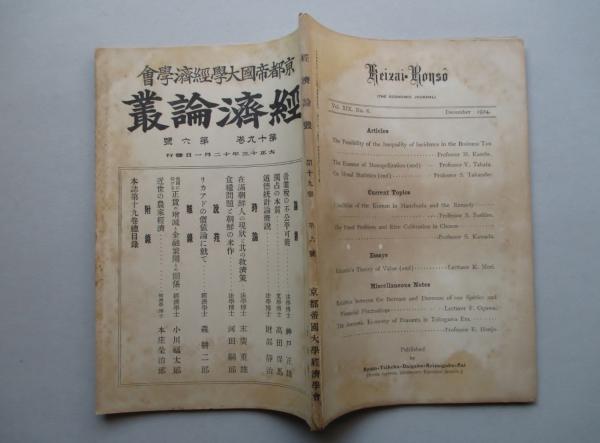 京都帝國大學經濟學會
經濟論叢
第十九卷 第六號
大正十三年十二月一日發行
論叢
營業稅の不公平可能 法學博士 神戶正雄
獨占の本質 文學博士 高田保馬
道德統計論梗說 法學博士 財部靜治
時論
在滿朝鮮人の現狀と其の救濟策 法學博士 末廣重雄
食糧問題と朝鮮の米作 法學博士 河田嗣郎
說苑
リカアドの價値論に就て 經濟學士 森耕二郎
雜錄
正貨の增減と金融繁閑との關係 經濟學士 小川福太郎
近世の農家經濟 本庄榮治郎
附錄
本誌第十九卷總目錄
經濟論叢 第十九卷 第六號 京都帝國大學經濟學會
Keizai-Ronsō
(THE ECONOMIC JOURNAL)
Vol. XIX. No. 6. December 1924.
Articles
The Possibility of the Inequality of Incidence in the Business Tax
Professor M. Kambe.
The Essence of Monopolization (end) Professor Y. Takata.
On Moral Statistics (end) Professor S. Takarabe.
Current Topics
Condition of the Korean in Manchuria and the Remedy
Professor S. Suehiro.
The Food Problem and Rice Cultivation in Chosen
Professor S. Kawada.
Essays
Ricardo's Theory of Value (end) Lecturer K. Mori.
Miscellaneous Notes
Relation between the Increase and Decrease of our Species and
Financial Fluctuations Lecturer F. Ogawa.
The Domestic Economy of Peasants in Tokugawa Era
Professor E. Honjo.
Published
by
Kyoto-Teikoku-Daigaku-Keizaigaku-Kai